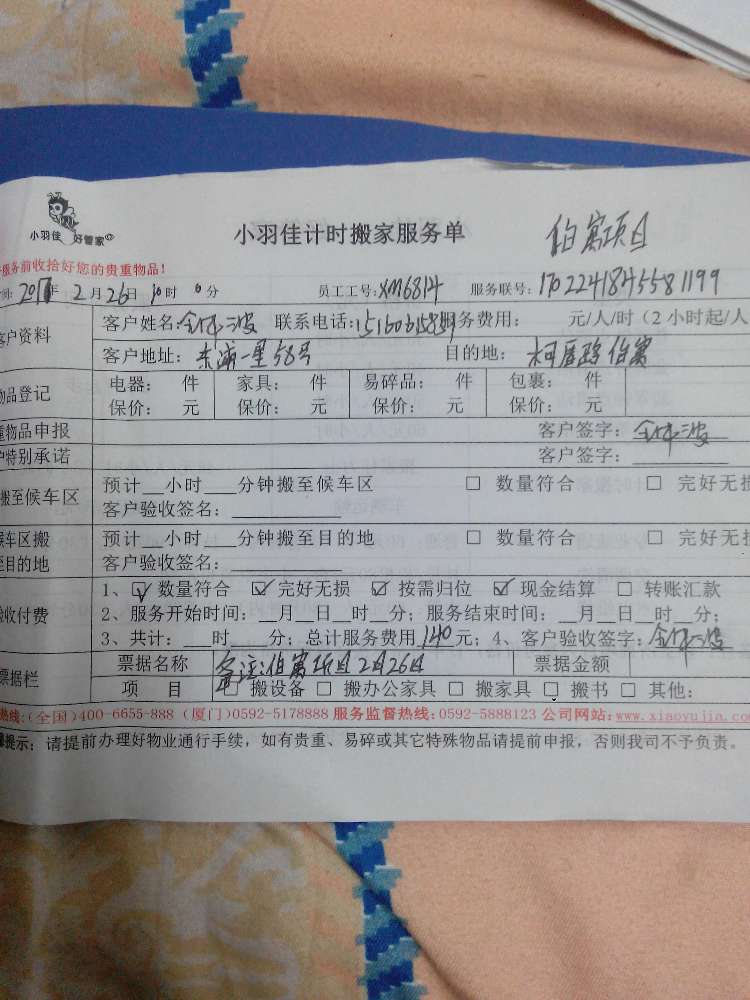 小羽佳 好管家
小羽佳计时搬家服务单
伯寓项目
服务前收拾好您的贵重物品！
间: 2017年 2月26日 10时 0分 员工工号: XM6814 服务联号: 170224184558 1199
客户资料
客户姓名: 联系电话: 务费用: 元/人/时（2小时起/人
客户地址: 东浦一里58号 目的地: 柯厝路伯寓
物品登记
电器: 件 家具: 件 易碎品: 件 包裹: 件
保价: 元 保价: 元 保价: 元 保价: 元
重物品申报 客户签字:
户特别承诺 客户签字:
搬至候车区
预计__小时___分钟搬至候车区 □ 数量符合 □ 完好无损
客户验收签名:
候车区搬至目的地
预计__小时___分钟搬至目的地 □ 数量符合 □ 完好无损
客户验收签名:
验收付费
1、☑ 数量符合 ☑ 完好无损 ☑ 按需归位 ☑ 现金结算 □ 转账汇款
2、服务开始时间: __月__日__时__分; 服务结束时间: __月__日__时__分;
3、共计: ___时___分; 总计服务费用140元; 4、客户验收签字:
票据栏
票据名称 备注:伯寓项目2月26日 票据金额
项 目 □ 搬设备 □ 搬办公家具 □ 搬家具 □ 搬书 □ 其他:
热线: (全国)400-6655-888 (厦门)0592-5178888 服务监督热线: 0592-5888123 公司网站: www.xiaoyujia.com
提示: 请提前办理好物业通行手续，如有贵重、易碎或其它特殊物品请提前申报，否则我司不予负责。